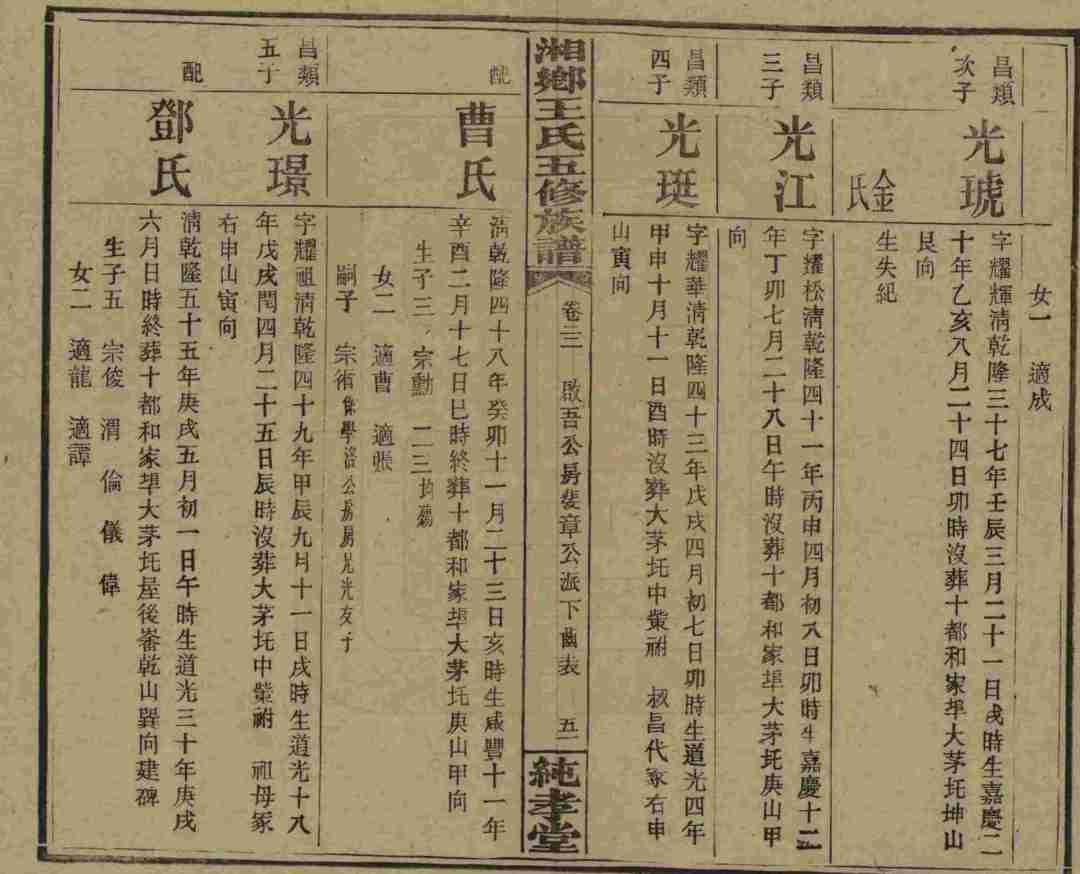 女一 適成
昌類次子
光琥
字耀輝清乾隆三十七年壬辰三月二十一日戌時生嘉慶二
十年乙亥八月二十四日卯時沒葬十都和家埠大茅圫坤山
艮向
金氏
生失紀
昌類三子
光江
字耀松清乾隆四十一年丙申四月初八日卯時生嘉慶十二
年丁卯七月二十八日午時沒葬十都和家埠大茅圫庚山甲
向
昌類四子
光珽
字耀華清乾隆四十三年戊戌四月初七日卯時生道光四年
甲申十月十一日酉時沒葬大茅圫中塋祔 叔昌代冢右申
山寅向
湘鄉王氏五修族譜
卷三 啟吾公房斐章公派下齒表 五一
純孝堂
配
曹氏
清乾隆四十八年癸卯十一月二十三日亥時生咸豐十一年
辛酉二月十七日巳時終葬十都和家埠大茅圫庚山甲向
生子三 宗勳 二三均殤
女二 適曹 適張
嗣子 宗 係學洛公房房兄光友子
昌類五子
光璟
字耀祖清乾隆四十九年甲辰九月十一日戌時生道光十八
年戊戌閏四月二十五日辰時沒葬大茅圫中塋祔 祖母冢
右申山寅向
配
鄧氏
清乾隆五十五年庚戌五月初一日午時生道光三十年庚戌
六月日時終葬十都和家埠大茅圫屋後崙乾山巽向建碑
生子五 宗俊 渭 倫 儀 偉
女二 適龍 適譚